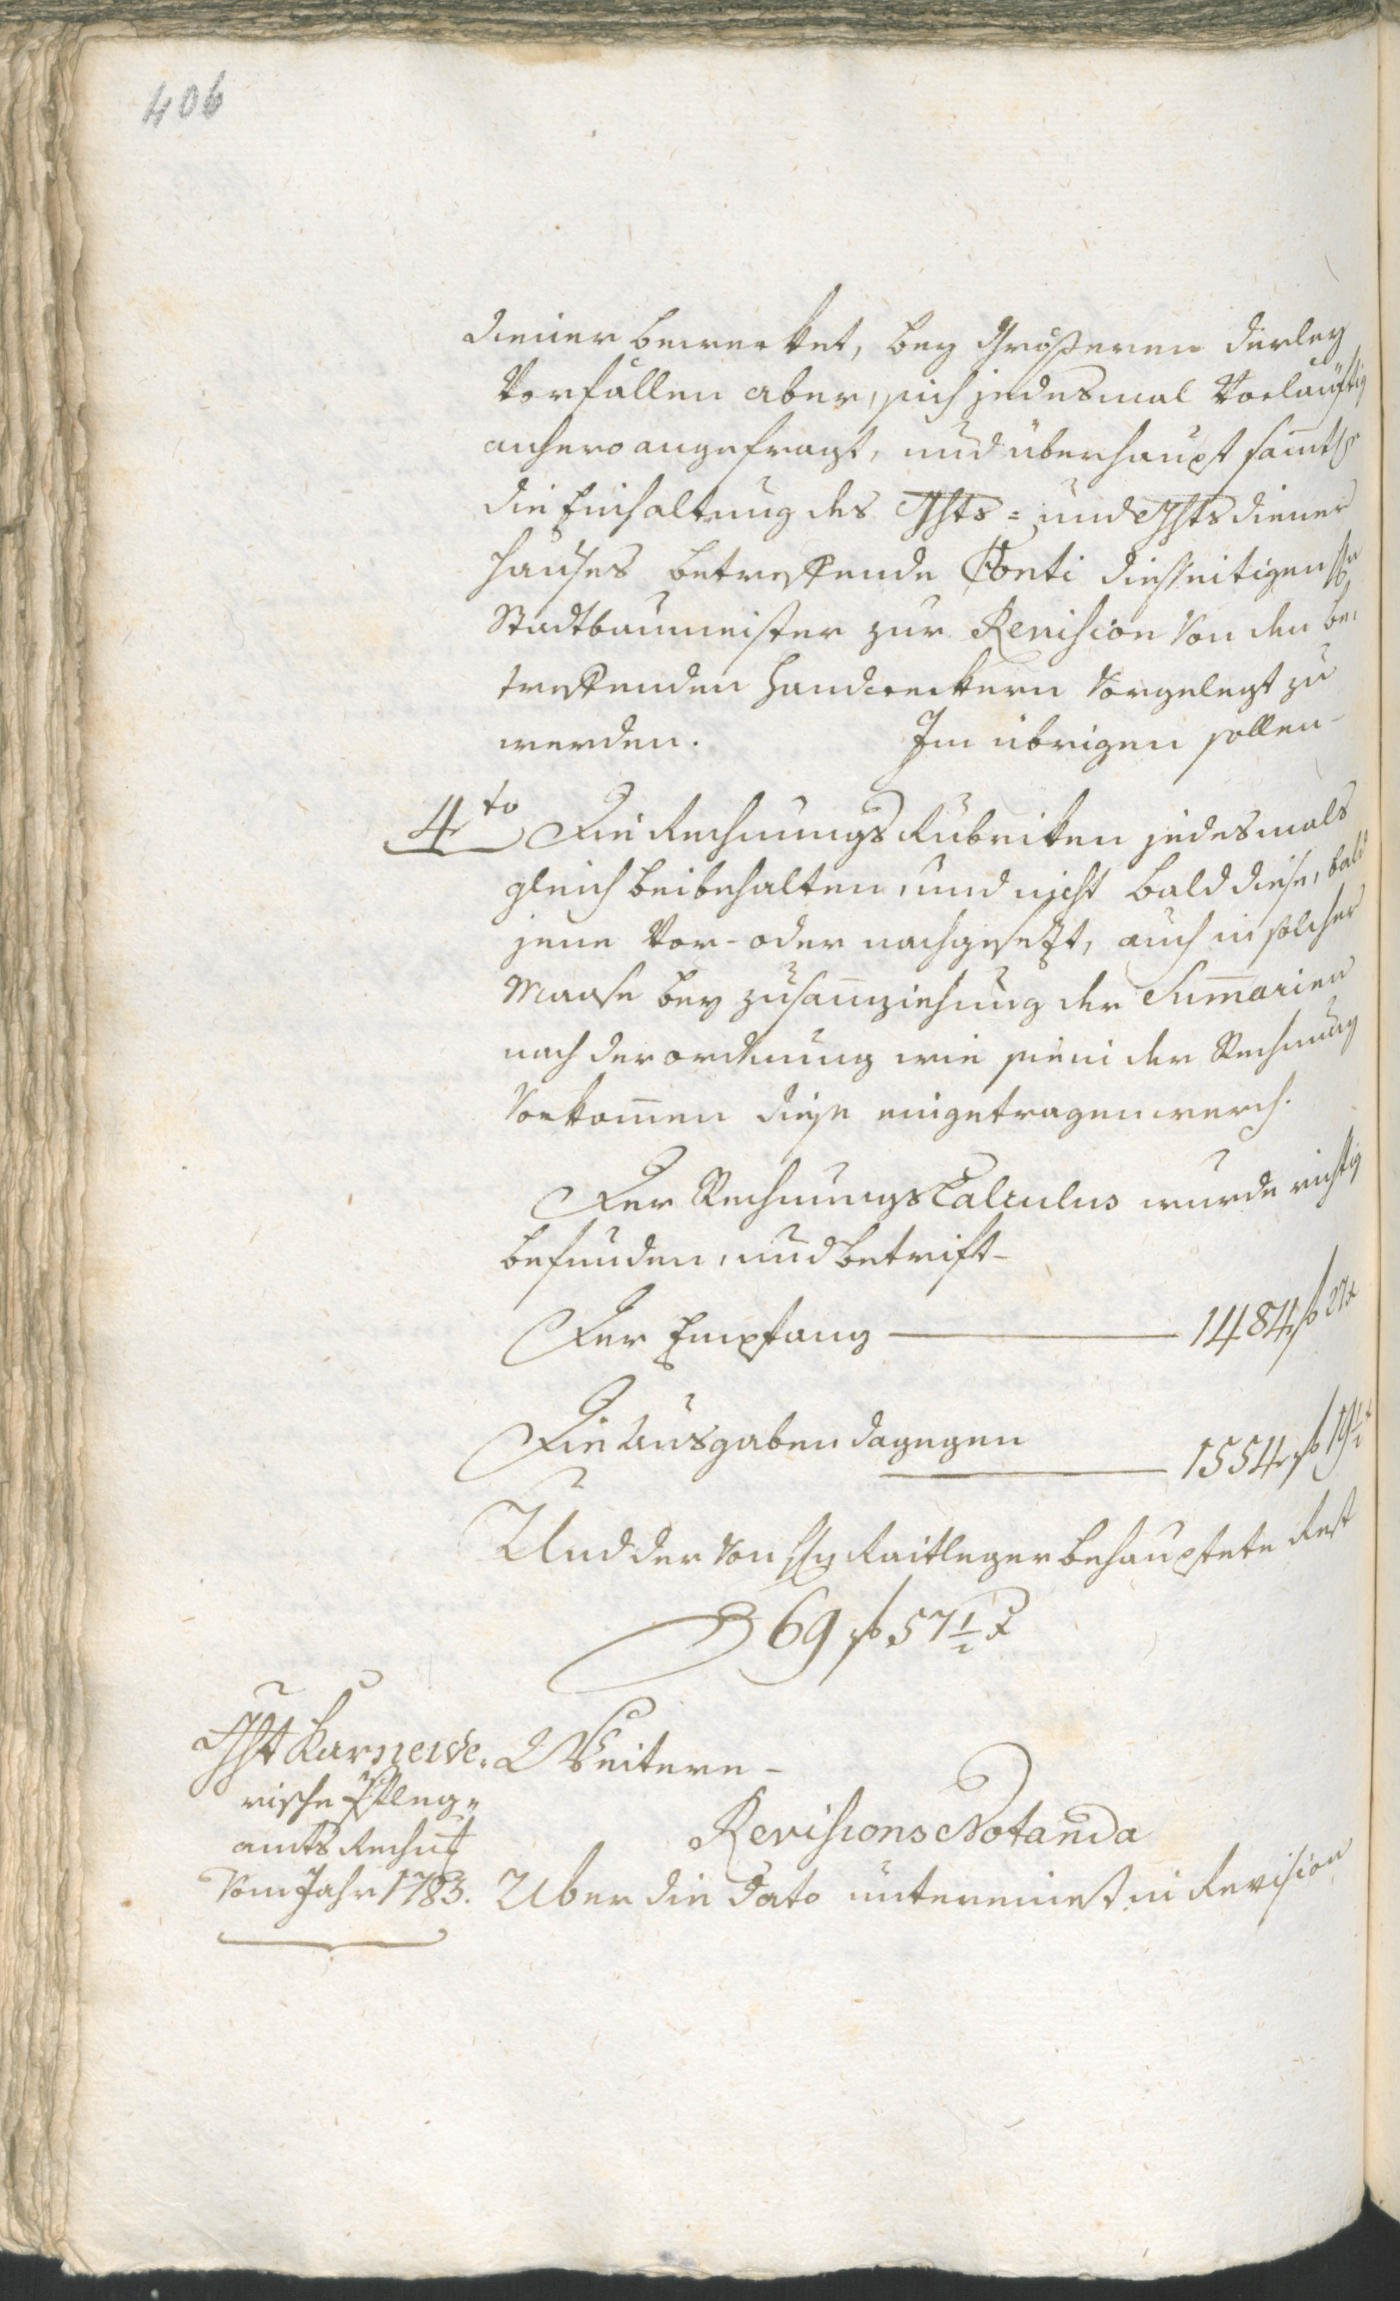 406
diener bemerket, bey Größeren derley
Vorfällen aber, sich jedesmal Vorläuftig
anhero angefragt, und überhaupt samtl
die Einhaltung des Ghts= und Ghtsdiener
Hauses betreffende Conti diesseitigen
Stadtbaumeister zur Revision Von den be„
treffenden Handwerkern Vorgelegt zu
werden. Im übrigen sollen-
4to Die Rechnungs Rubriken jedesmals
gleich beibehalten, und nicht bald diese, bald
jene Vor- oder nachgesezt, auch in solcher
Maase bey Zusam̅ziehung der Sum̅arien
nach der ordnung wie sie in der Rechnung
Vorkom̅en diese eingetragen werd.
Der Rechnungs Calculus wurde richtig
befunden, und betrift-
Der Empfang — 1484 f 27 x
Die Ausgaben dagegen
— 1554 f 19½ x
Und der Von H Raitleger behauptete Rest
69 f 57½ x
Ght Karneide. Weitere-
rische Pfleg„
amts Rechng
Vom Jahr 1783.
Revisions Notanda
Uber die Dato untereinest in Revision